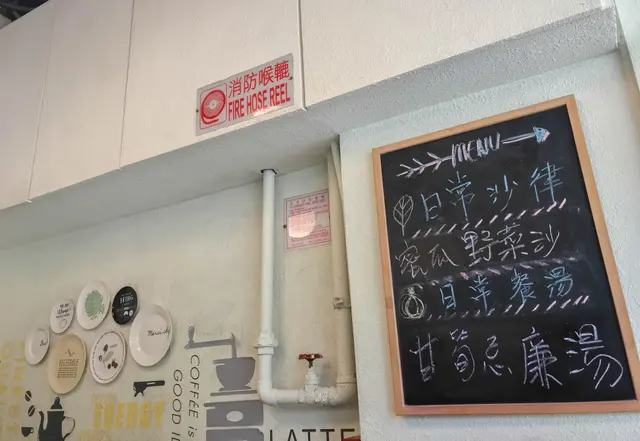 消防喉轆
FIRE HOSE REEL
MENU
日常沙律
蜜瓜野菜沙
日常餐湯
甘筍忌廉湯
COFFEE
GOOD ID
ENERGY
LATTE